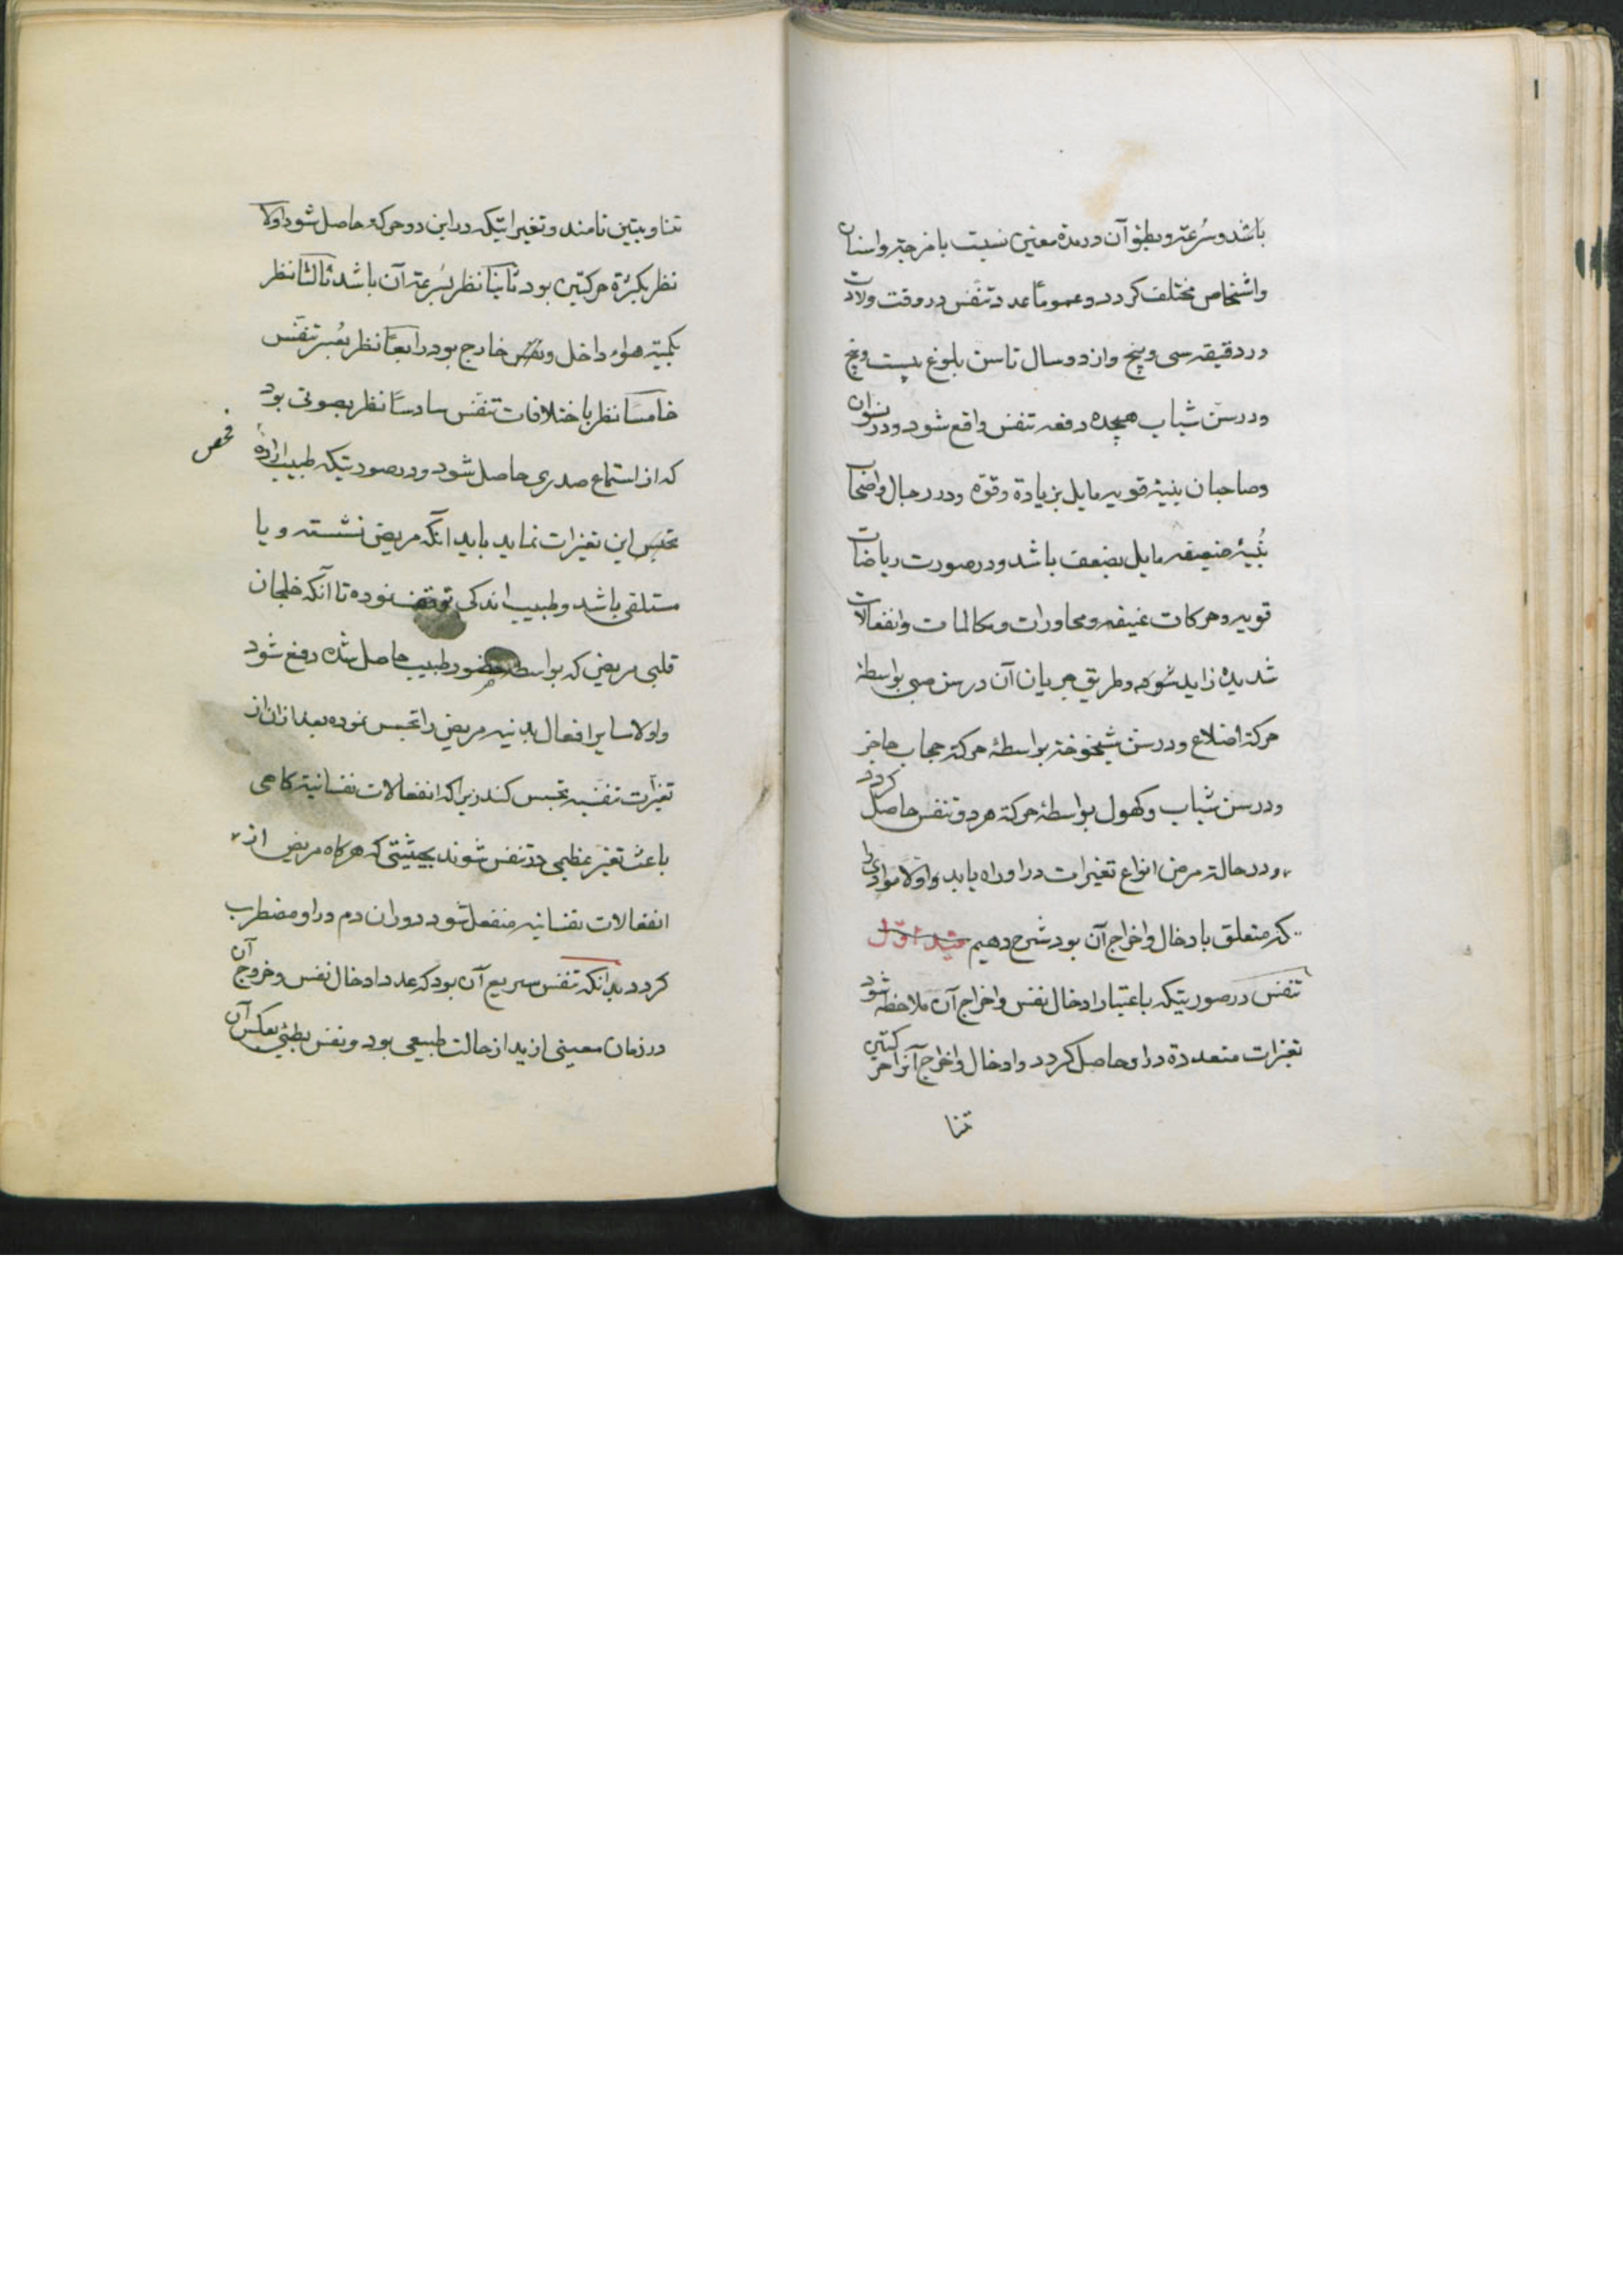 باشد و سُرعة و بطؤ آن در مدة معین نسبت بامزجة و اسنان
و اشخاص مختلف کردد و عموماً عدد تنفس در وقت ولادت
در دقیقه سی و پنج و از دو سال تا سن بلوغ بیست و پنج
و در سن شباب هیجده دفعه تنفس واقع شود و در نسوان
و صاحبان بنیۀ قویه مایل بزیادة و قوة و در رجال و اصحاب
بُنیۀ ضعیفه مایل بضعف باشد و در صورت ریاضات
قویه و حرکات عنیفه و محاورات و مکالمات و انفعالات
شدیده زاید شود و طریق جریان آن در سن صبی بواسطۀ
حرکة اضلاع و در سن شیخوخة بواسطۀ حرکة حجاب حاجز
و در سن شباب و کهول بواسطۀ حرکة هر دو تنفس حاصل کردد
و در حالة مرض انواع تغیرات در او راه یابد و اولا موادی را
که متعلق بادخال و اخراج آن بود شرح دهیم اول
تنفس در صورتیکه باعتبار ادخال نفس و اخراج آن ملاحظه شود
تغیرات متعددة در او حاصل کردد و ادخال و اخراج آنرا حرکتین
تنا
تناوبیتین نامند و تغیراتیکه در این دو حرکة حاصل شود اولا
نظر بکثرة حرکتین بود ثانیا نظر بسُرعة آن باشد ثالثا نظر
بکمیة هواء داخل و نفس خارج بود رابعاً نظر بعُسر تنفس
خامساً نظر باختلافات تنفس سادساً نظر بصوتی بود
که از استماع صدری حاصل شود و در صورتیکه طبیب اراده
فحص
تجسس این تغیرات نماید باید آنکه مریض نشسته و یا
مستلقی باشد و طبیب اندکی توقف نموده تا آنکه خلجان
قلبی مریض که بواسطه حضور طبیب حاصل شده دفع شود
و اولا سایر افعال بدنیه مریض را تجسس نموده بعد ازان از
تغیرات تنفسیه تجسس کند زیرا که انفعالات نفسانیة کاهی
باعث تغیر عظیمی در تنفس شوند بحیثیتی که هرکاه مریض از
انفعالات نفسانیه منفعل شود دوران دم در او مضطرب
کردد بدانکه تنفس سریع آن بود که عدد ادخال نفس و خروج آن
در زمان معینی ازید از حالت طبیعی بود و نفس بطئی بعکس آن